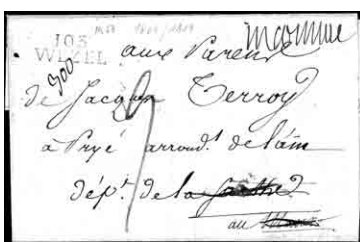 103
WEZEL
inconnue
300
aux Parens
de Jacques Terroy
a Pryé arrond.t de l'ain
dép.t de la Sarthe
au